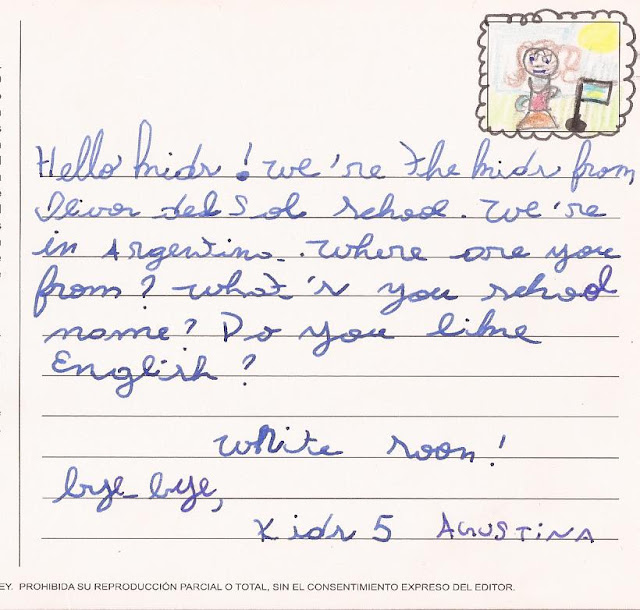 Hello kids! We're the kids from
Devon del Sol school. We're
in Argentina. Where are you
from? What's you school
name? Do you like
English?
White soon!
bye-bye,
Kids 5 AGUSTINA
EY. PROHIBIDA SU REPRODUCCIÓN PARCIAL O TOTAL, SIN EL CONSENTIMIENTO EXPRESO DEL EDITOR.